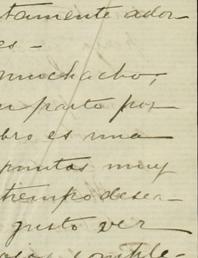 tamente ador-
es-
muchacho;
n parto por
bro es una
puntos muy
tiempo deser-
gusto ver